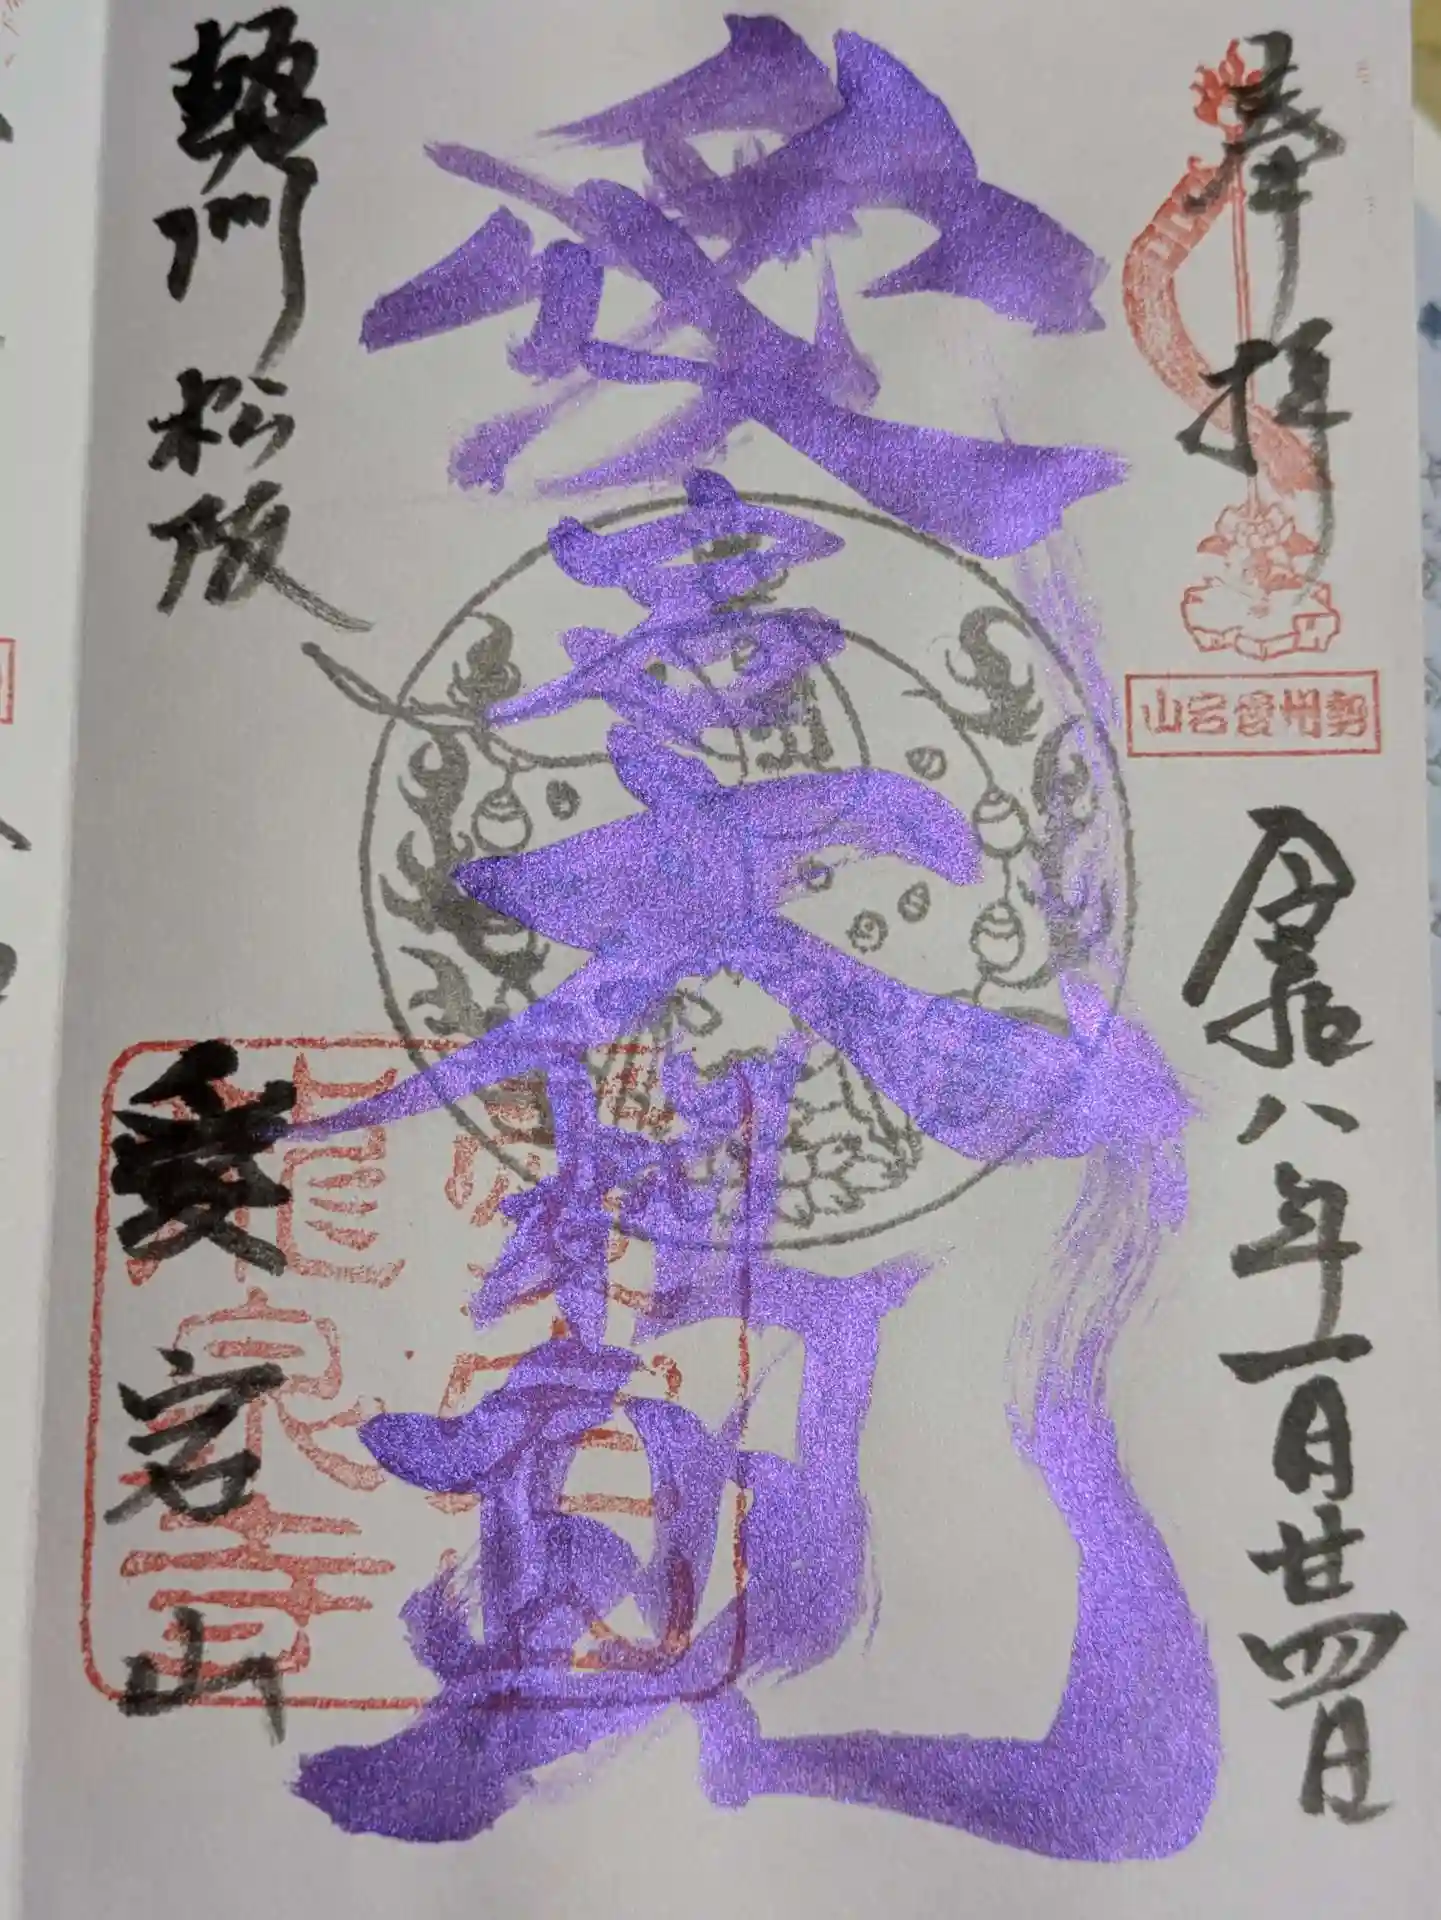 奉拝
勢州愛宕山
令和八年一月廿四日
愛宕大権現
勢州松阪
愛宕山
龍泉寺